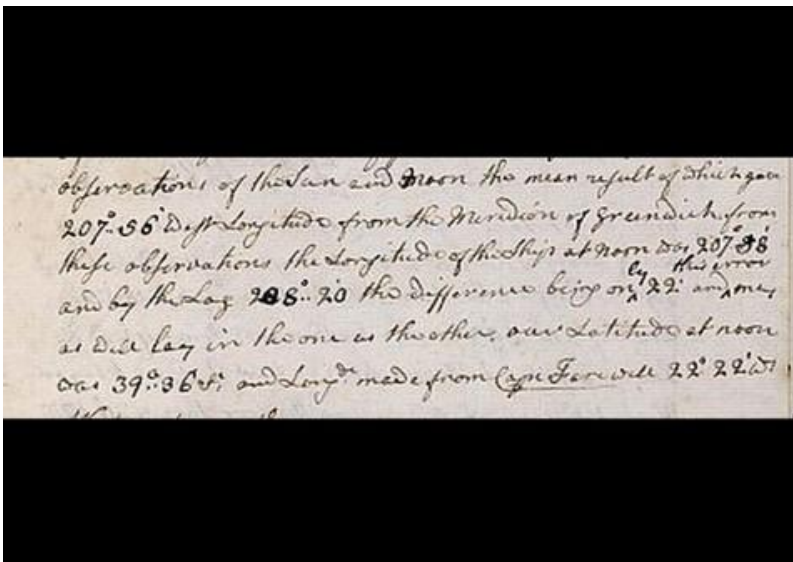 observations of the Sun and Moon the mean result of which gave
207°.. 56' West Longitude from the Meridion of Greenwich from
these observations the Longitude of the Ship at noon was 207° 58'
and by the Log 208°.. 20 the difference being only 22' and this error may
as well lay in the one as the other. our Latitude at noon
was 39°.. 36' S: and Longde made from Cape Farewell 22° 22' Wt